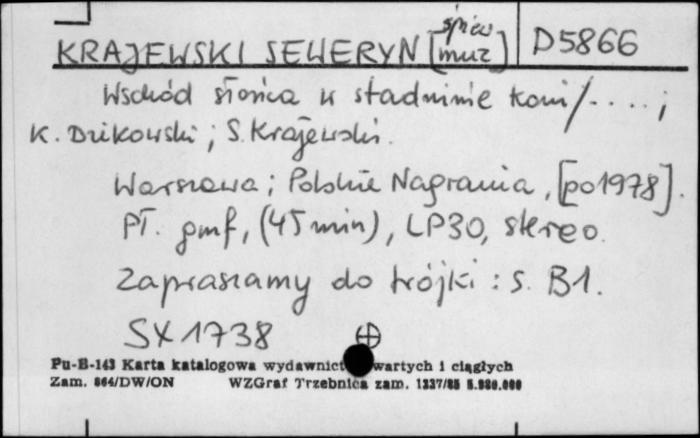 KRAJEWSKI SEWERYN [śpiew muz] D5866
Wschód słońca w stadninie koni /....;
K. Dzikowski; S. Krajewski.
Warszawa; Polskie Nagrania, [po 1978].
Pł. gmf, (45 min), LP30, stereo.
Zapraszamy do trójki: s. B1.
SX 1738
Pu-B-143 Karta katalogowa wydawnict wartych i ciągłych
Zam. 864/DW/ON WZGraf Trzebnica zam. 1337/85 5.980.000